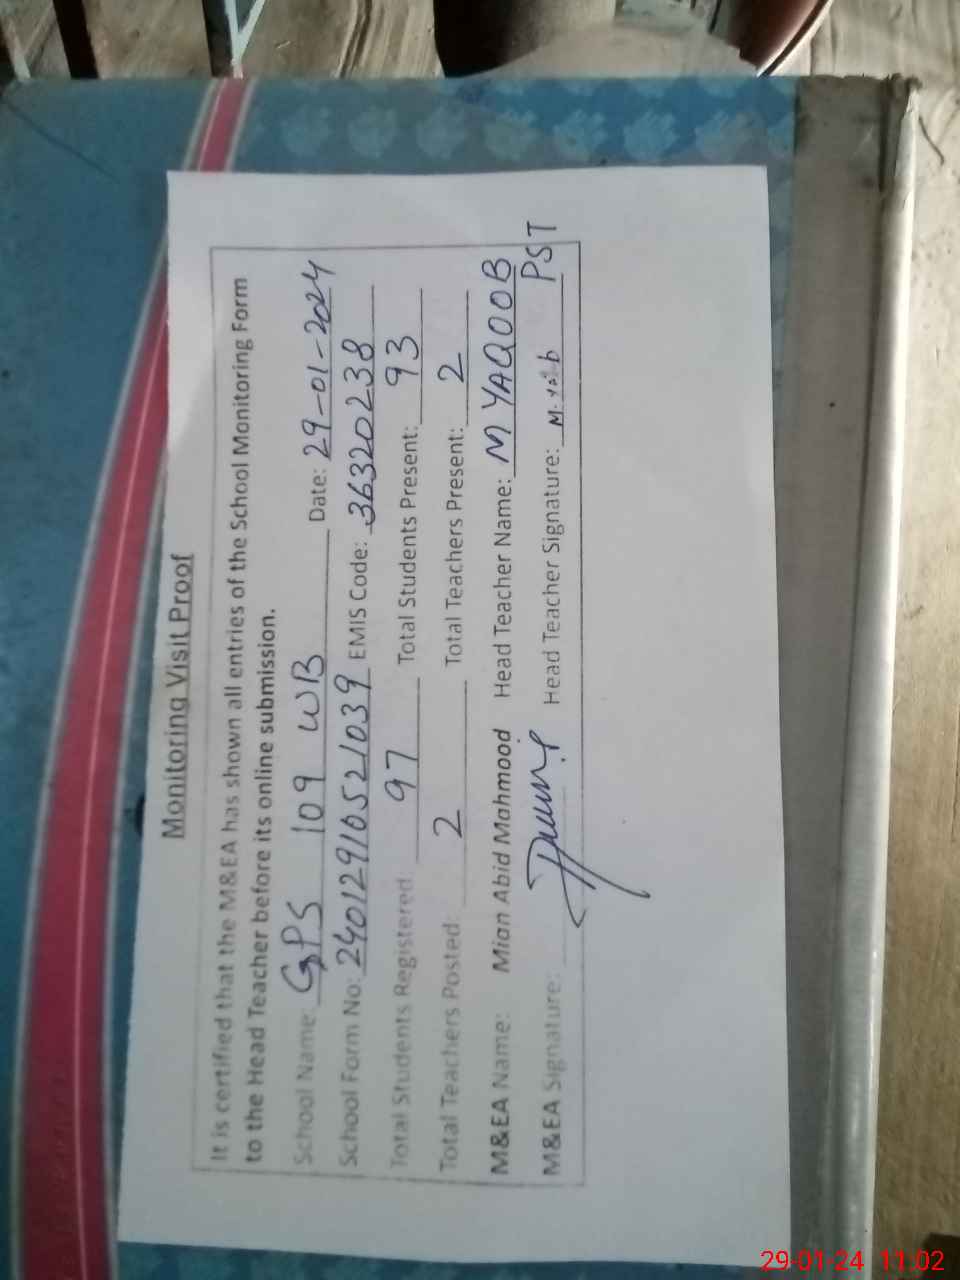 Monitoring Visit Proof
It is certified that the M&EA has shown all entries of the School Monitoring Form
to the Head Teacher before its online submission.
School Name: GPS 109 WB Date: 29-01-2024
School Form No: 24012910521039 EMIS Code: 36320238
Total Students Registered: 97 Total Students Present: 93
Total Teachers Posted: 2 Total Teachers Present: 2
M&EA Name: Mian Abid Mahmood Head Teacher Name: M YAQOOB
M&EA Signature: Head Teacher Signature: PST
29-01-24 11:02